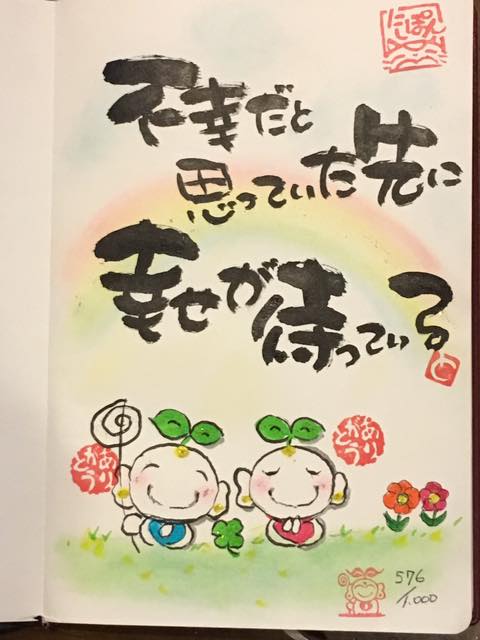 にっぽん
不幸だと
思っていた先に
幸せが待っている
ありがとう
ありがとう
576
1.000